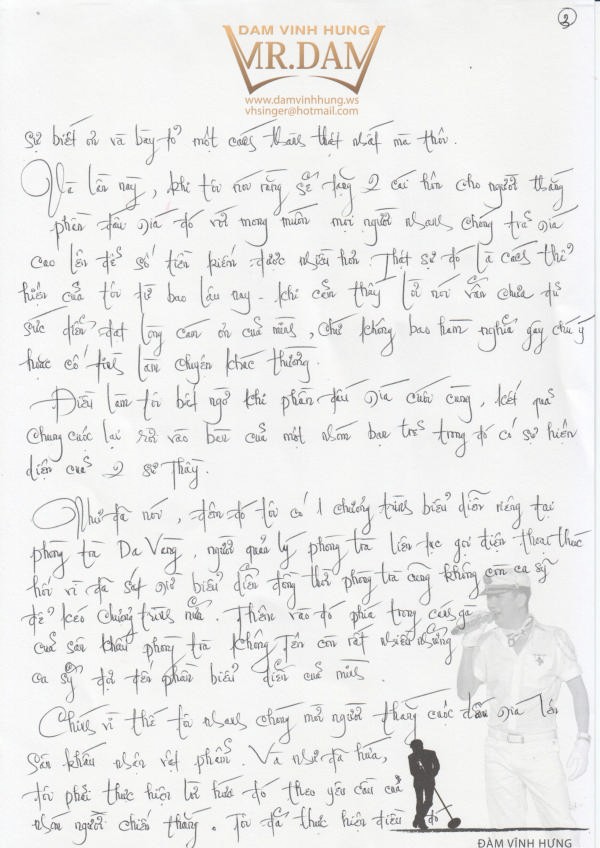 2
DAM VINH HUNG
MR.DAM
www.damvinhhung.ws
vhsinger@hotmail.com
sự biết ơn và bày tỏ một cách thành thật nhất mà thôi.
Và lần này, khi tôi nói rằng sẽ tặng 2 cái hôn cho người thắng
phần đấu giá đó với mong muốn mọi người nhanh chóng trả giá
cao lên để số tiền kiếm được nhiều hơn. Thật sự đó là cách thể
hiện của tôi từ bao lâu nay - khi cảm thấy lời nói vẫn chưa đủ
sức diễn đạt lòng cám ơn của mình, chứ không bao hàm nghĩa gây chú ý
hoặc cố tình làm chuyện khác thường.
Điều làm tôi bất ngờ khi phần đấu giá cuối cùng, kết quả
chung cuộc lại rơi vào bàn của một nhóm bạn trẻ trong đó có sự hiện
diện của 2 sư Thầy.
Như đã nói, đêm đó tôi có 1 chương trình biểu diễn riêng tại
phòng trà Da Vàng, người quản lý phòng trà liên tục gọi điện thoại thúc
hối vì đã sát giờ biểu diễn đồng thời phòng trà cũng không còn ca sỹ
để kéo chương trình nữa. Thêm vào đó phía trong cánh gà
của sân khấu phòng trà Không Tên còn rất nhiều những
ca sỹ đợi đến phần biểu diễn của mình.
Chính vì thế tôi nhanh chóng mời người thắng cuộc đấu giá lên
sân khấu nhận vật phẩm. Và như đã hứa,
tôi phải thực hiện lời hứa đó theo yêu cầu của
nhóm người chiến thắng. Tôi đã thực hiện điều đó
ĐÀM VĨNH HƯNG